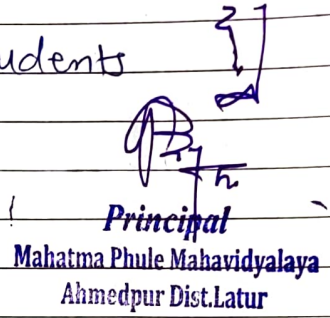 udents
Principal
Mahatma Phule Mahavidyalaya
Ahmedpur Dist.Latur